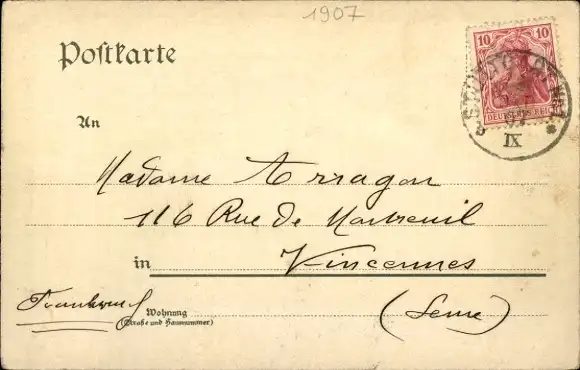 1907
Postkarte
10
DEUTSCHES REICH
IX
An
Madame Arragon
116 Rue de Montreuil
in Vincennes
(Seine)
Wohnung
(Straße und Hausnummer)